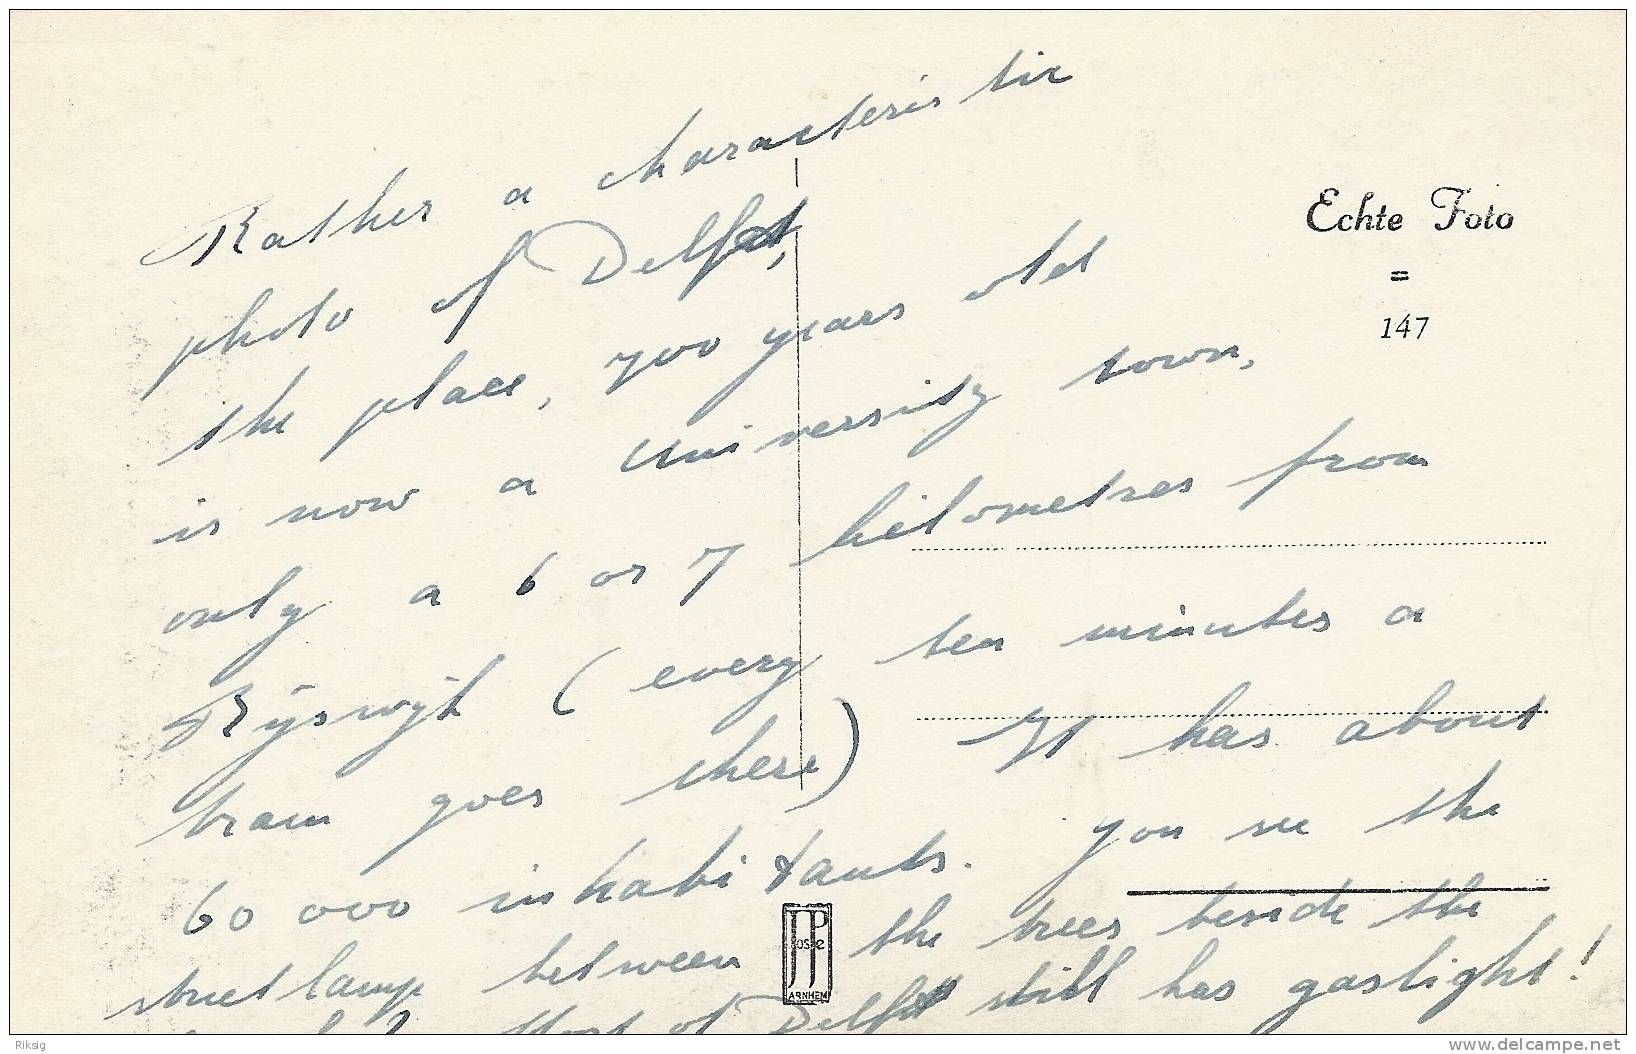 Rather a characteristic
photo of Delft,
the place, 700 years old
is now a University town,
only a 6 or 7 kilometres from
Rijswijk (every ten minutes a
tram goes there) It has about
60 000 inhabitants. You see the
street lamp between the trees beside the
Most of Delft still has gaslight!
Echte Foto
=
147
JP
JosPe
ARNHEM
Riksig
www.delcampe.net